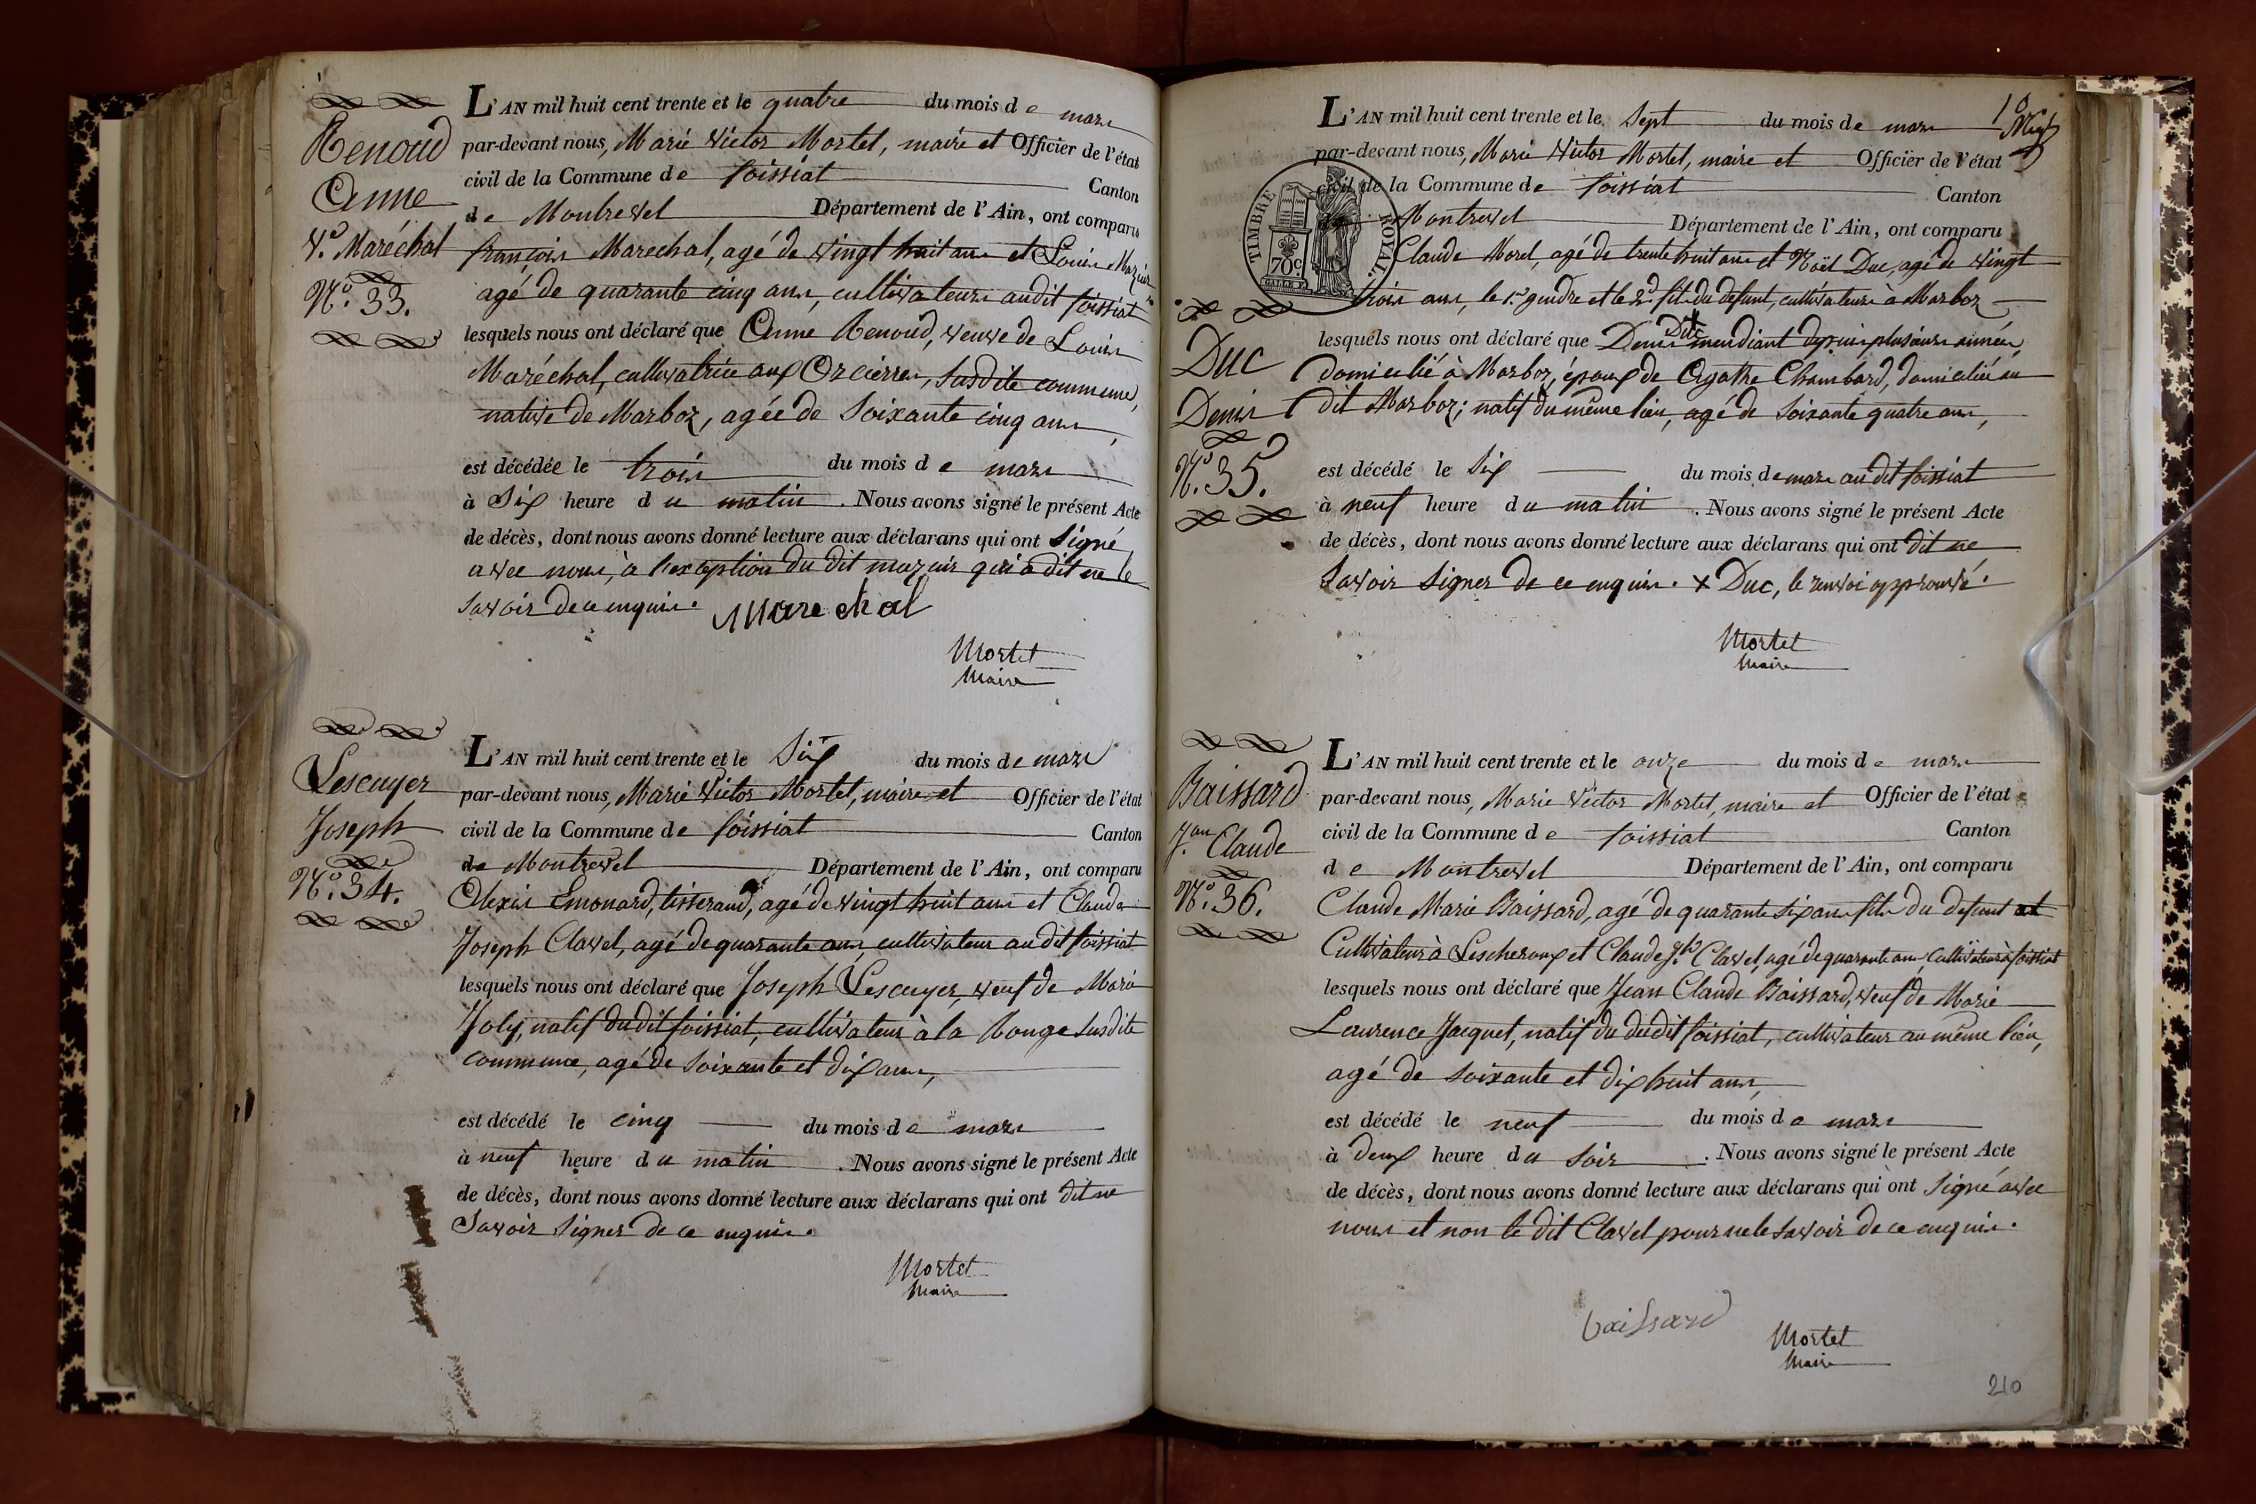 Renoud
Anne
Ve. Maréchal
No. 33.
L'AN mil huit cent trente et le quatre du mois de mars
par-devant nous, Marie Victor Mortet, maire et Officier de l'état
civil de la Commune de foissiat Canton
de Montrevel Département de l'Ain, ont comparu
françois Marechal, agé de vingt huit ans et Louis Mazuir
agé de quarante cinq ans, cultivateurs audit foissiat
lesquels nous ont déclaré que Anne Renoud, veuve de Louis
Maréchal, cultivatrice aux Orcières, susdite commune,
native de Marboz, agée de soixante cinq ans,
est décédée le trois du mois de mars
à six heure du matin. Nous avons signé le présent Acte
de décès, dont nous avons donné lecture aux déclarans qui ont signé
avec nous, à l'exception du dit mazuir qui a dit ne le
savoir de ce enquis. Marechal
Mortet
Maire
Lescuyer
Joseph
No. 34.
L'AN mil huit cent trente et le six du mois de mars
par-devant nous, Marie Victor Mortet, maire et Officier de l'état
civil de la Commune de foissiat Canton
de Montrevel Département de l'Ain, ont comparu
Alexis Emonard, tisserand, agé de vingt huit ans et Claude
Joseph Clavel, agé de quarante ans, cultivateur au dit foissiat
lesquels nous ont déclaré que Joseph Lescuyer, veuf de Marie
Joly, natif dudit foissiat, cultivateur à la Rouge susdite
commune, agé de soixante et dix ans,
est décédé le cinq du mois de mars
à neuf heure du matin. Nous avons signé le présent Acte
de décès, dont nous avons donné lecture aux déclarans qui ont dit ne
Savoir signer de ce enquis.
Mortet
Maire
10
TIMBRE ROYAL.
70c
Duc
Denis
No. 35.
L'AN mil huit cent trente et le Sept du mois de mars
par-devant nous, Marie Victor Mortet, maire et Officier de l'état
civil de la Commune de foissiat Canton
de Montrevel Département de l'Ain, ont comparu
Claude Morel, agé de trente huit ans et Noël Duc, agé de vingt
trois ans, le 1er gendre et le 2d fils du défunt, cultivateurs à Marboz
lesquels nous ont déclaré que Denis mendiant depuis plusieurs années,
domicilié à Marboz, époux de Agathe Chambard, domiciliée au
dit Marboz; natif du même lieu, agé de soixante quatre ans,
est décédé le six du mois de mars au dit foissiat
à neuf heure du matin. Nous avons signé le présent Acte
de décès, dont nous avons donné lecture aux déclarans qui ont dit ne
Savoir signer de ce enquis. x Duc, le renvoi approuvé.
Mortet
Maire
Baissard
Jan Claude
No. 36.
L'AN mil huit cent trente et le onze du mois de mars
par-devant nous, Marie Victor Mortet, maire et Officier de l'état
civil de la Commune de foissiat Canton
de Montrevel Département de l'Ain, ont comparu
Claude Marie Baissard, agé de quarante six ans fils du defunt et
Cultivateur à Lescheroux et Claude Jph Clavel, agé de quarante ans, cultivateur à foissiat
lesquels nous ont déclaré que Jean Claude Baissard, veuf de Marie
Laurence Jacquet, natif du dudit foissiat, cultivateur au même lieu,
agé de soixante et dix huit ans,
est décédé le neuf du mois de mars
à deux heure du soir. Nous avons signé le présent Acte
de décès, dont nous avons donné lecture aux déclarans qui ont signé avec
nous et non le dit Clavel pour ne le savoir de ce enquis.
baissard
Mortet
Maire
210